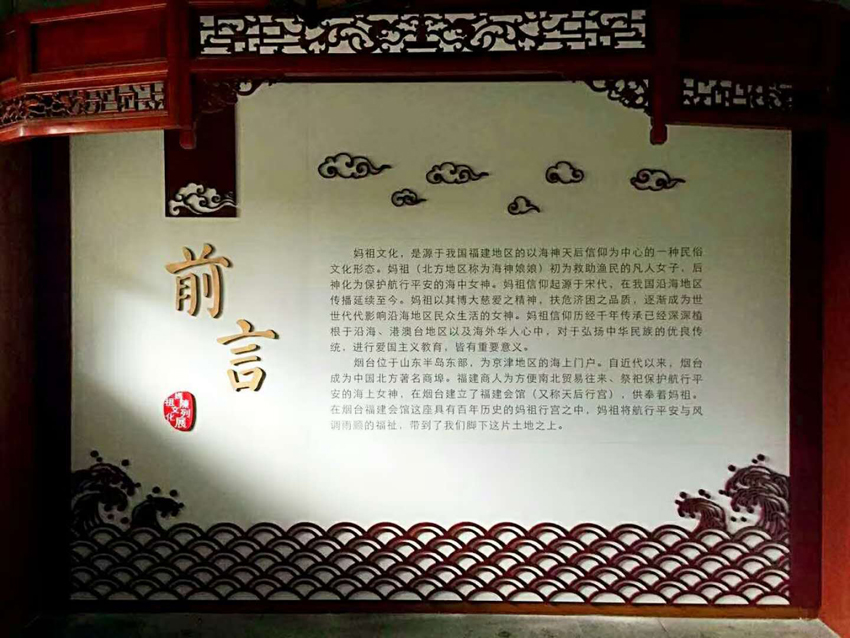 前言
妈祖文化陈列展
妈祖文化，是源于我国福建地区的以海神天后信仰为中心的一种民俗
文化形态。妈祖（北方地区称为海神娘娘）初为救助渔民的凡人女子，后
神化为保护航行平安的海中女神。妈祖信仰起源于宋代，在我国沿海地区
传播延续至今。妈祖以其博大慈爱之精神，扶危济困之品质，逐渐成为世
世代代影响沿海地区民众生活的女神。妈祖信仰历经千年传承已经深深植
根于沿海、港澳台地区以及海外华人心中，对于弘扬中华民族的优良传
统，进行爱国主义教育，皆有重要意义。
烟台位于山东半岛东部，为京津地区的海上门户。自近代以来，烟台
成为中国北方著名商埠。福建商人为方便南北贸易往来、祭祀保护航行平
安的海上女神，在烟台建立了福建会馆（又称天后行宫），供奉着妈祖。
在烟台福建会馆这座具有百年历史的妈祖行宫之中，妈祖将航行平安与风
调雨顺的福祉，带到了我们脚下这片土地之上。